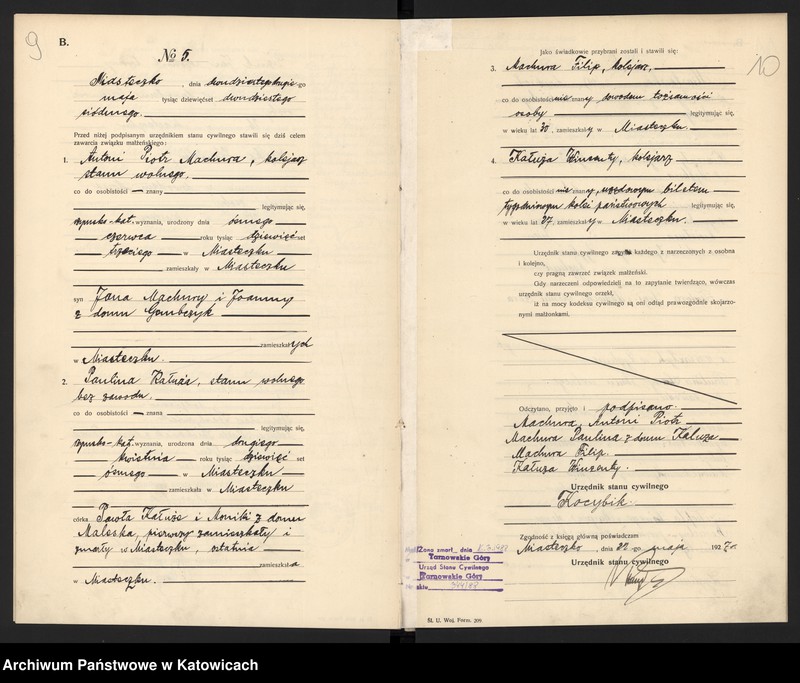 9
B.
№ 5.
Miasteczko, dnia dwudziestegodrugiego
maja tysiąc dziewięćset dwudziestego
siódmego.
Przed niżej podpisanym urzędnikiem stanu cywilnego stawili się dziś celem
zawarcia związku małżeńskiego:
1. Antoni Piotr Machura, kolejarz
stanu wolnego.
co do osobistości — znany
legitymując się,
rzymsko-kat. wyznania, urodzony dnia ósmego
czerwca roku tysiąc dziewięćset
trzeciego w Miasteczku
zamieszkały w Miasteczku
syn Jana Machury i Joanny
z domu Gembczyk
zamieszkałych
w Miasteczku.
2. Paulina Kałuża, stanu wolnego
bez zawodu.
co do osobistości — znana
legitymując się,
rzymsko-kat. wyznania, urodzona dnia drugiego
kwietnia roku tysiąc dziewięćset
ósmego w Miasteczku
zamieszkała w Miasteczku
córka Pawła Kałuże i Moniki z domu
Maleska, pierwszy zamieszkały i
zmarły w Miasteczku, ostatnia
zamieszkała
w Miasteczku.
10
Jako świadkowie przybrani zostali i stawili się:
3. Machura Filip, kolejarz,
co do osobistości nie znany dowodem tożsamości
osoby legitymując się,
w wieku lat 30, zamieszkały w Miasteczku.
4. Kałuża Winzenty, kolejarz
co do osobistości nie znany, urzędowym biletem
tygodniowym kolei państwowych legitymując się,
w wieku lat 27, zamieszkały w Miasteczku.
Urzędnik stanu cywilnego zapytał każdego z narzeczonych z osobna
i kolejno,
czy pragną zawrzeć związek małżeński.
Gdy narzeczeni odpowiedzieli na to zapytanie twierdząco, wówczas
urzędnik stanu cywilnego orzekł,
iż na mocy kodeksu cywilnego są oni odtąd prawozgodnie skojarzo-
nymi małżonkami.
Odczytano, przyjęto i podpisano.
Machura, Antoni Piotr
Machura Paulina z domu Kałuże
Machura Filip.
Kałuża Winzenty.
Urzędnik stanu cywilnego
Kocybik.
Zgodność z księgą główną poświadczam
Miasteczko, dnia 22 go maja 1927 r.
Urzędnik stanu cywilnego
zmarł dnia
Tarnowskie Góry
Urząd Stanu Cywilnego
Tarnowskie Góry
Śl. U. Woj. Form. 209.
Archiwum Państwowe w Katowicach